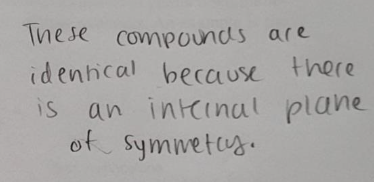 These compounds are
identical because there
is an internal plane
of symmetry.